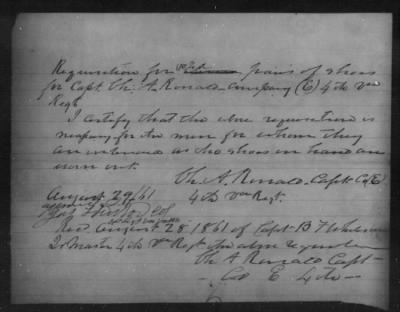 Requisition for pairs of shoes
for Capt Ch. A. Ronald company (E) 4th Va
Regt
I certify that the above requisition is
necessary for the men for whom they
are intended as the shoes on hand are
worn out.
Ch. A. Ronald Capt Co(E)
August 29/61 4th Va Regt.
Col
Recd August 28 1861 of Capt B F
Qr Master 4th Va Regt the above
Ch A Ronald Capt
Co E 4th